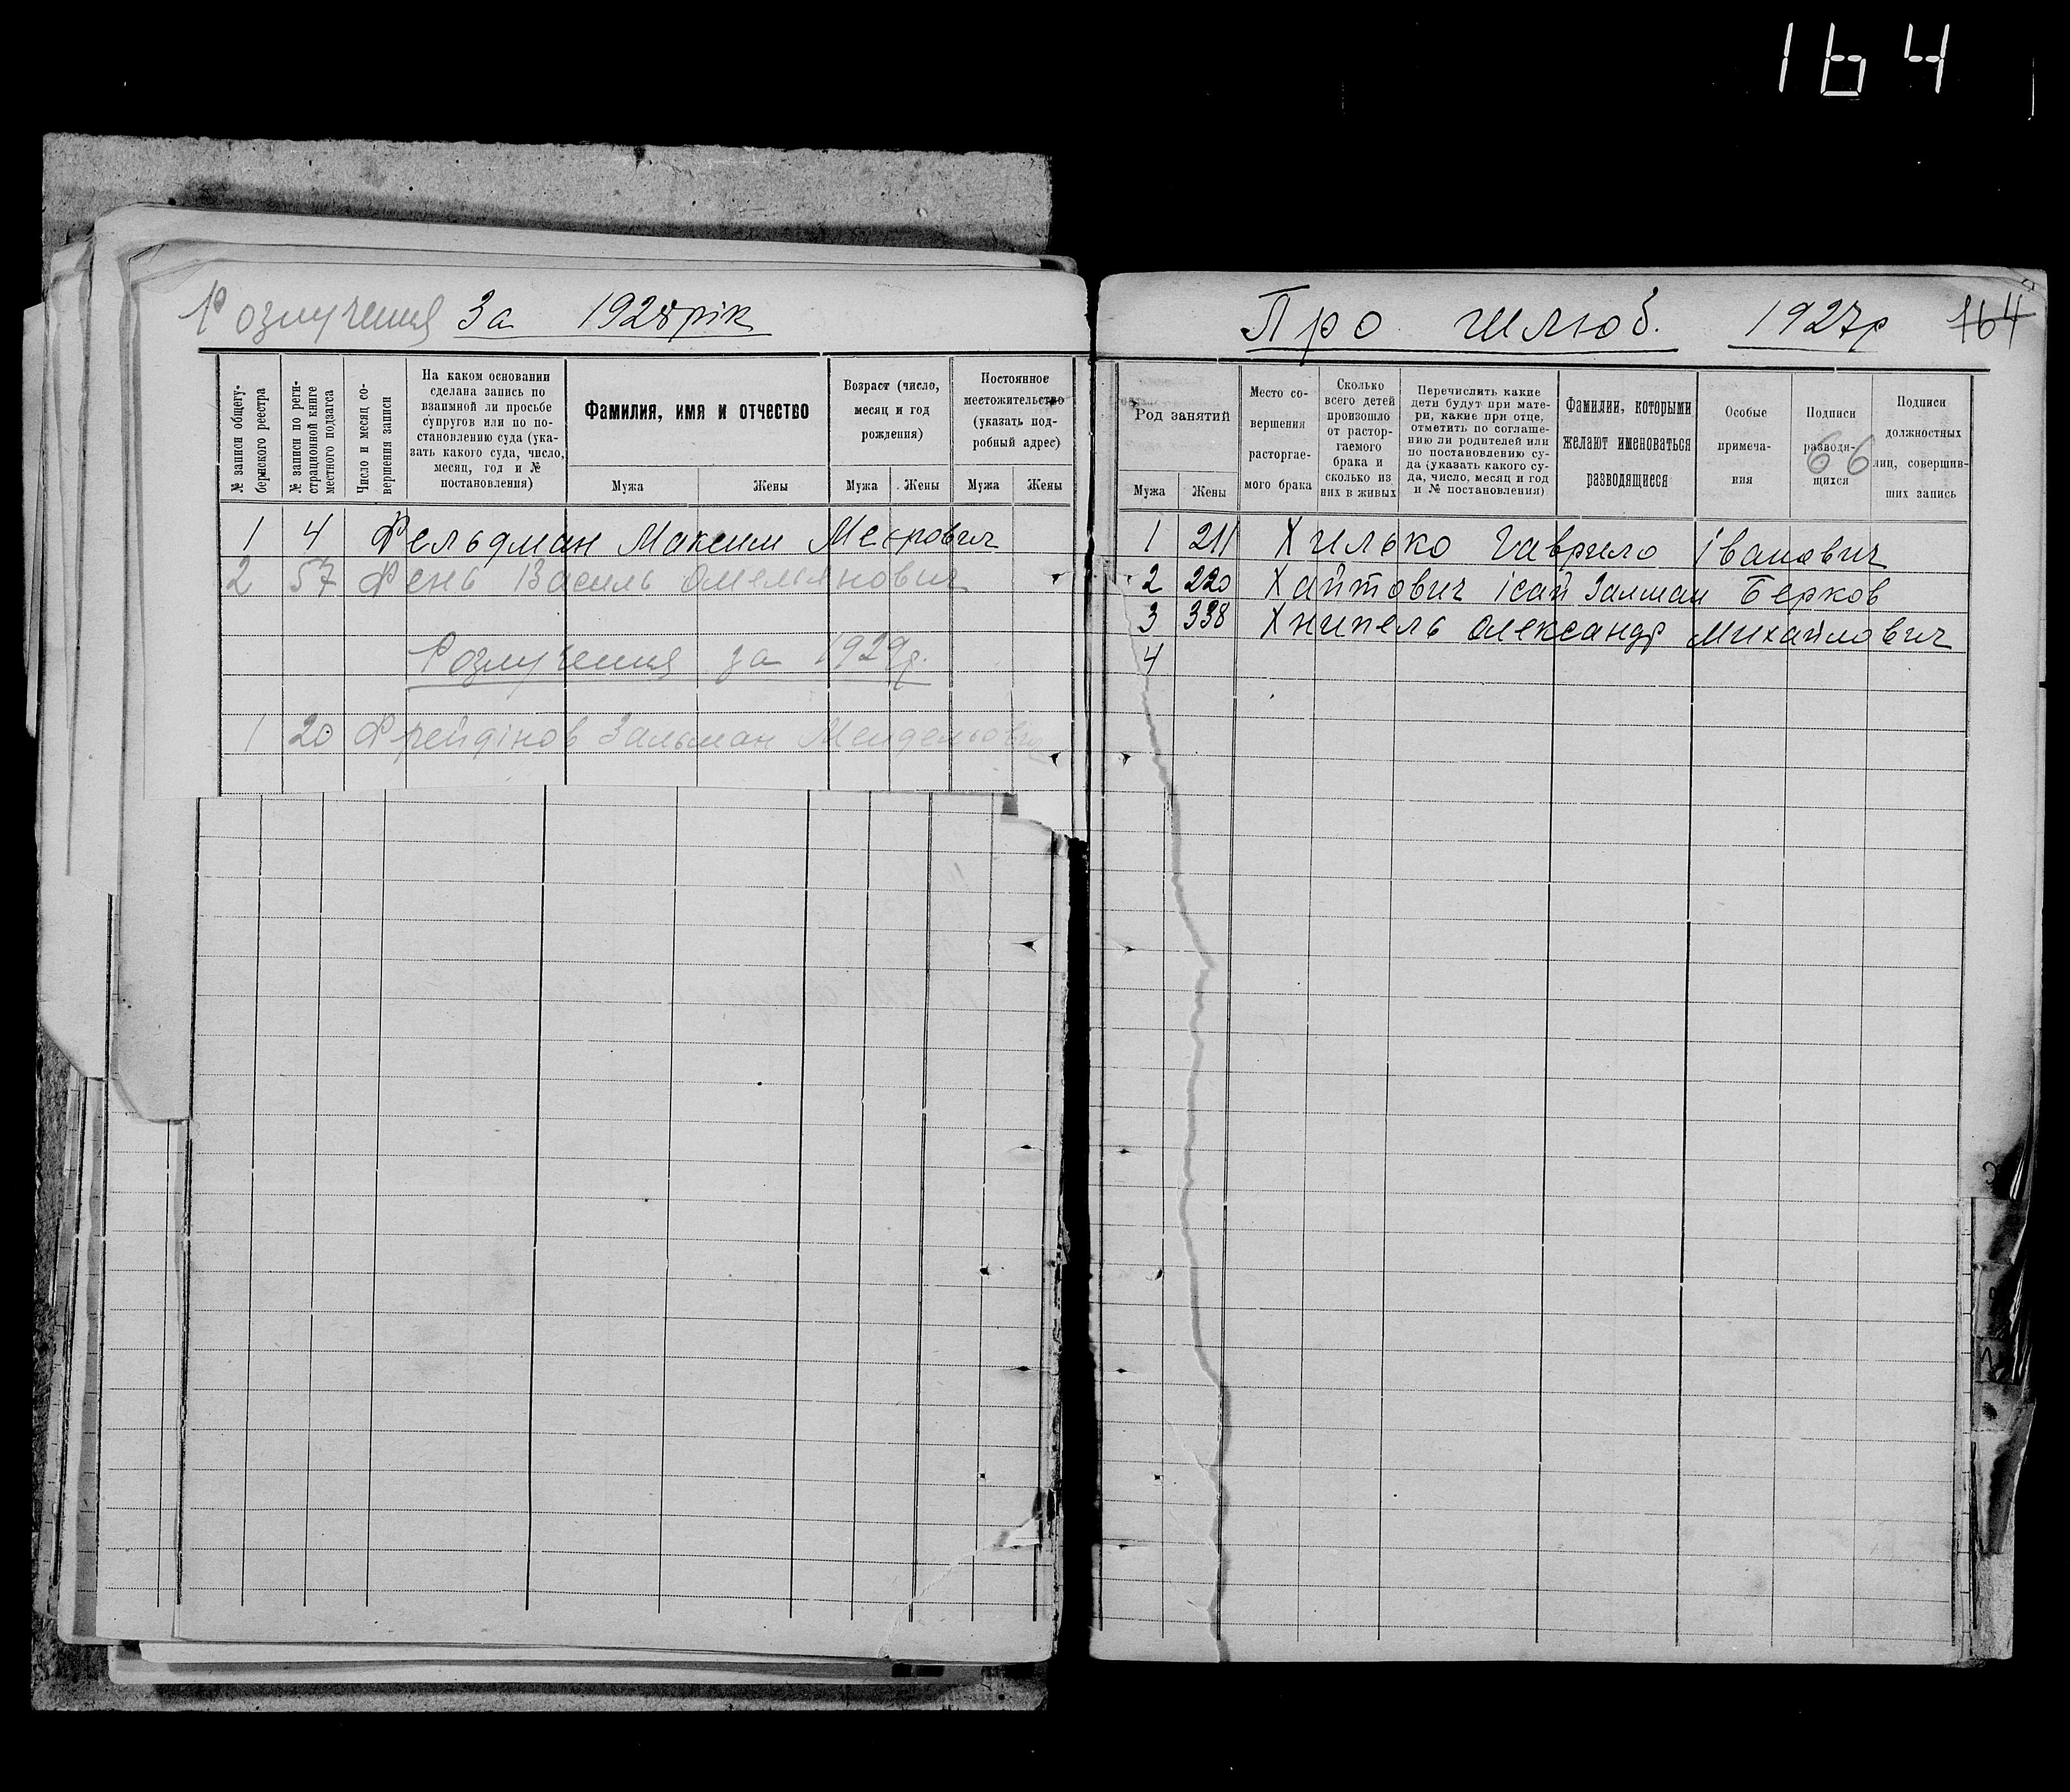 164
Розлучення За 1928 рік
№ записи общегу-
бернского реестра
№ записи по реги-
страционной книге
местного подзагса
Число и месяц со-
вершения записи
На каком основании
сделана запись по
взаимной ли просьбе
супругов или по по-
становлению суда (ука-
зать какого суда, число,
месяц, год и №
постановления)
Фамилия, имя и отчество
Мужа Жены
Возраст (число,
месяц и год
рождения)
Мужа Жены
Постоянное
местожительство
(указать под-
робный адрес)
Мужа Жены
1 4 Фельдман Максим Меєрович
2 57 Фень Василь Омелянович
Розлучення за 1929р.
1 20 Фрейдінов Зальман Мендельович
Про шлюб. 1927р 164
Род занятий
Мужа Жены
Место со-
вершения
расторгае-
мого брака
Сколько
всего детей
произошло
от растор-
гаемого
брака и
сколько из
них в живых
Перечислить какие
дети будут при мате-
ри, какие при отце,
отметить по соглаше-
нию ли родителей или
по постановлению су-
да (указать какого су-
да, число, месяц и год
и № постановления)
Фамилии, которыми
желают именоваться
разводящиеся
Особые
примеча-
ния
Подписи
разводя-
щихся
66
Подписи
должностных
лиц, совершив-
ших запись
1 211 Хилько Гаврило Іванович
2 220 Хайтович Ісай Залман Берков
3 338 Хнипель Олександр Михайлович
4